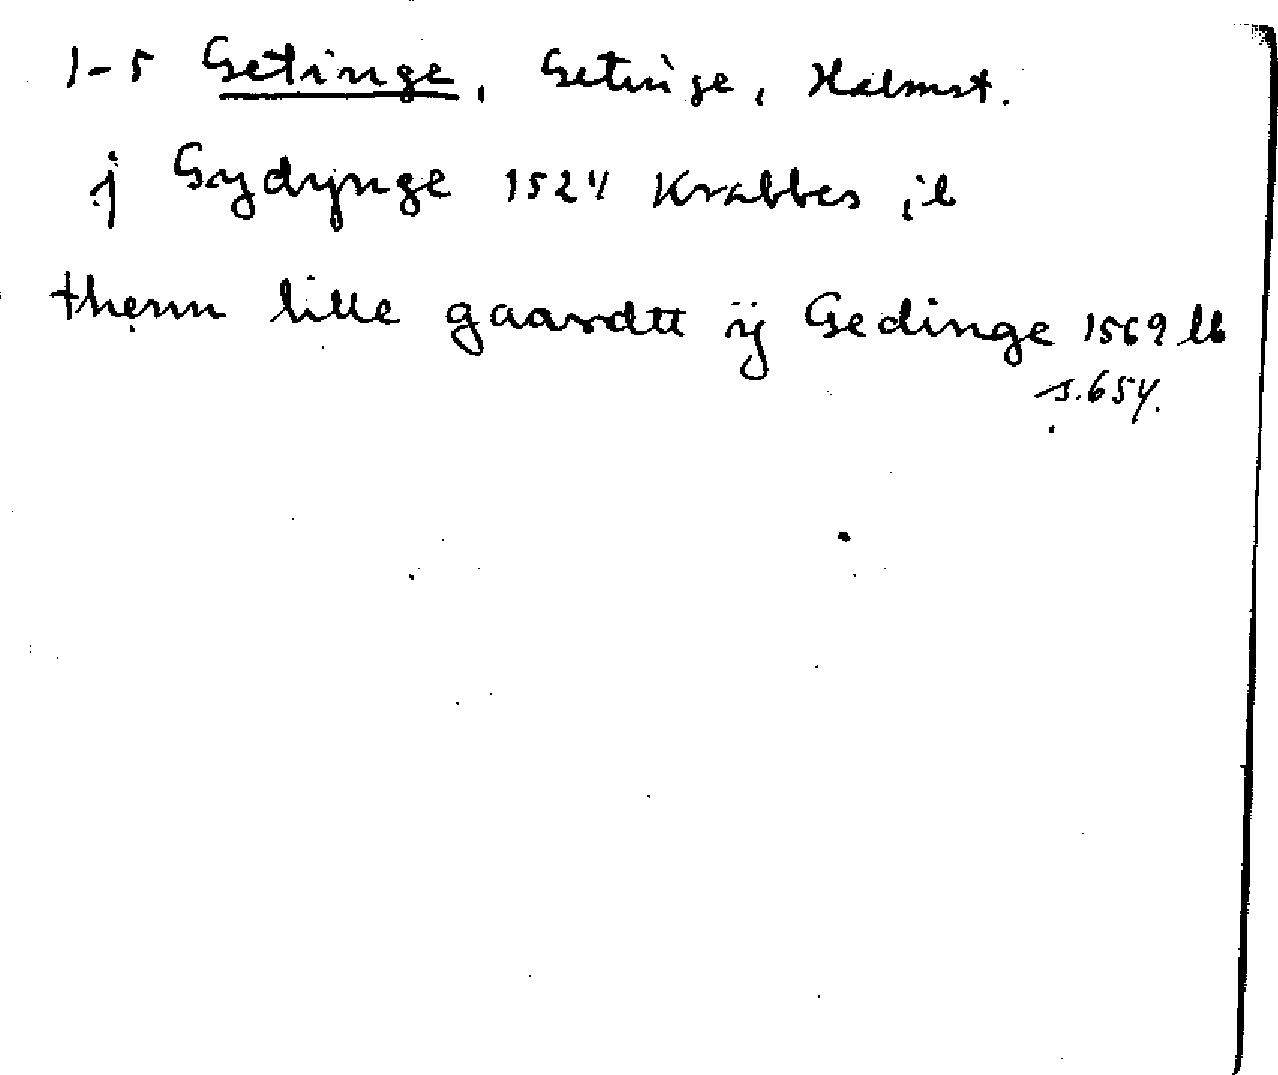 1-5 Getinge, Getinge, Halmst.
j Gydynge 1524 Krabbes jb
thenn lille gaardtt ij Gedinge 1569 lb
s. 654.